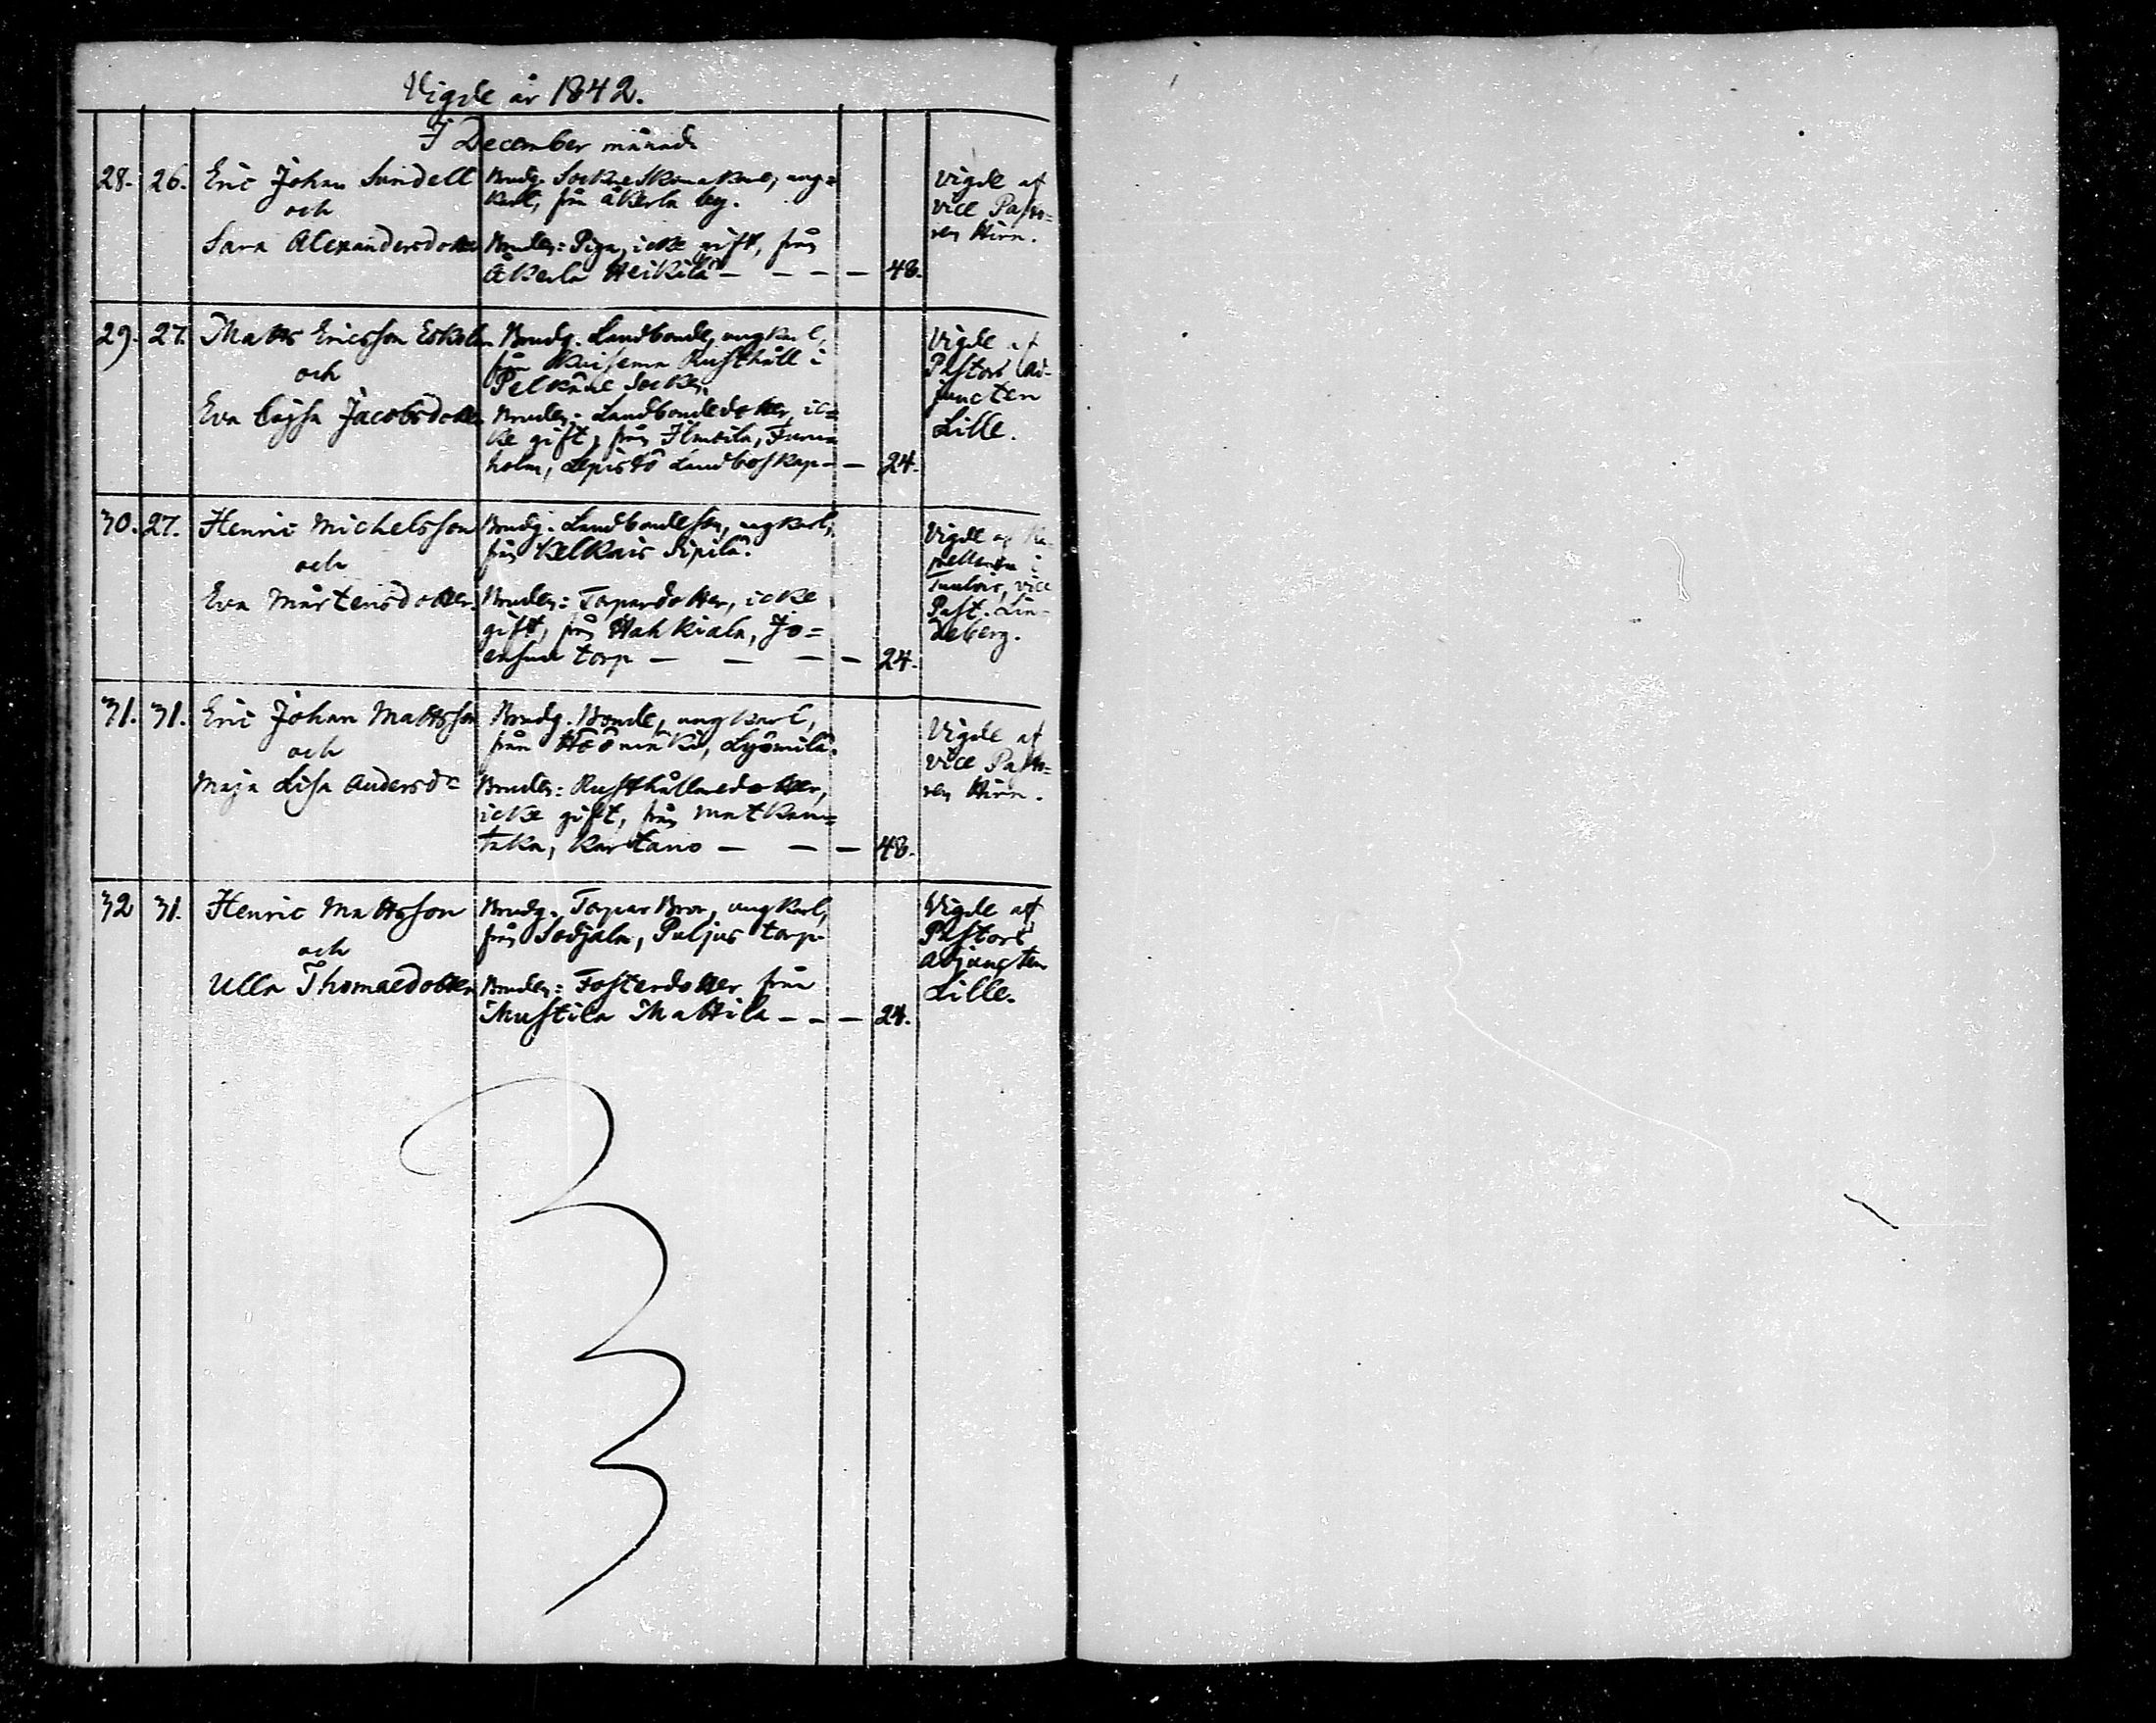 Vigde år 1842.
I December månad
28. 26. Eric Johan Sundell
och
Sara Alexandersdotter
Brudg. Sockneskomakare, ung=
karl, från Åkerla by.
Bruden: Piga, icke gift, från
Åkerla Heikilä — — — — 48.
Vigde af
vice Pasto=
ren Hirn.
29. 27. Matts Ericsson Eskola
och
Eva Cajsa Jacobsdotter
Brudg. Landbonde, ungkarl,
från Rusthåll i
Pelkäne Socken.
Bruden: Landbondedotter, ic=
ke gift, från Ilmoila,
holm, Lepistö Landboskap — — 24.
Vigde af
Pastors Ad-
juncten
Lille.
30. 27. Henric Michelsson
och
Eva Mårtensdotter.
Brudg. Landbondeson, ungkarl,
från Kelkais Sipilä.
Bruden: Torpardotter, icke
gift, från Hahkiala, Jo=
ensuu torp — — — — 24.
Vigde af Ka-
pellanen i
Tuulois, vice
Past. Lin-
deberg.
31. 31. Eric Johan Mattsson
och
Maja Lisa Andersdr
Brudg. Bonde, ungkarl,
från Lyömilä.
Bruden: Rusthållaredotter,
icke gift, från Matkan=
taka, Kartano — — — 48.
Vigde af
vice Pasto=
ren Hirn.
32 31. Henric Mattsson
och
Ulla Thomaedotter
Brudg. Torpar Bror, ungkarl,
från Sodjala, Puljus torp
Bruden: Fosterdotter från
Mustila Mattila — — — 24.
Vigde af
Pastors
adjuncten
Lille.